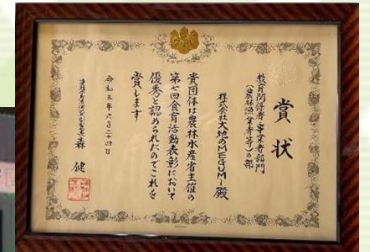 賞状
教育関係者・事業者部門
(農林漁業者等)の部
株式会社大地のMEGUMI 殿
貴団体は農林水産省主催の
第七回食育活動表彰において
優秀と認められたのでこれを
賞します
令和五年六月二十四日
森 健